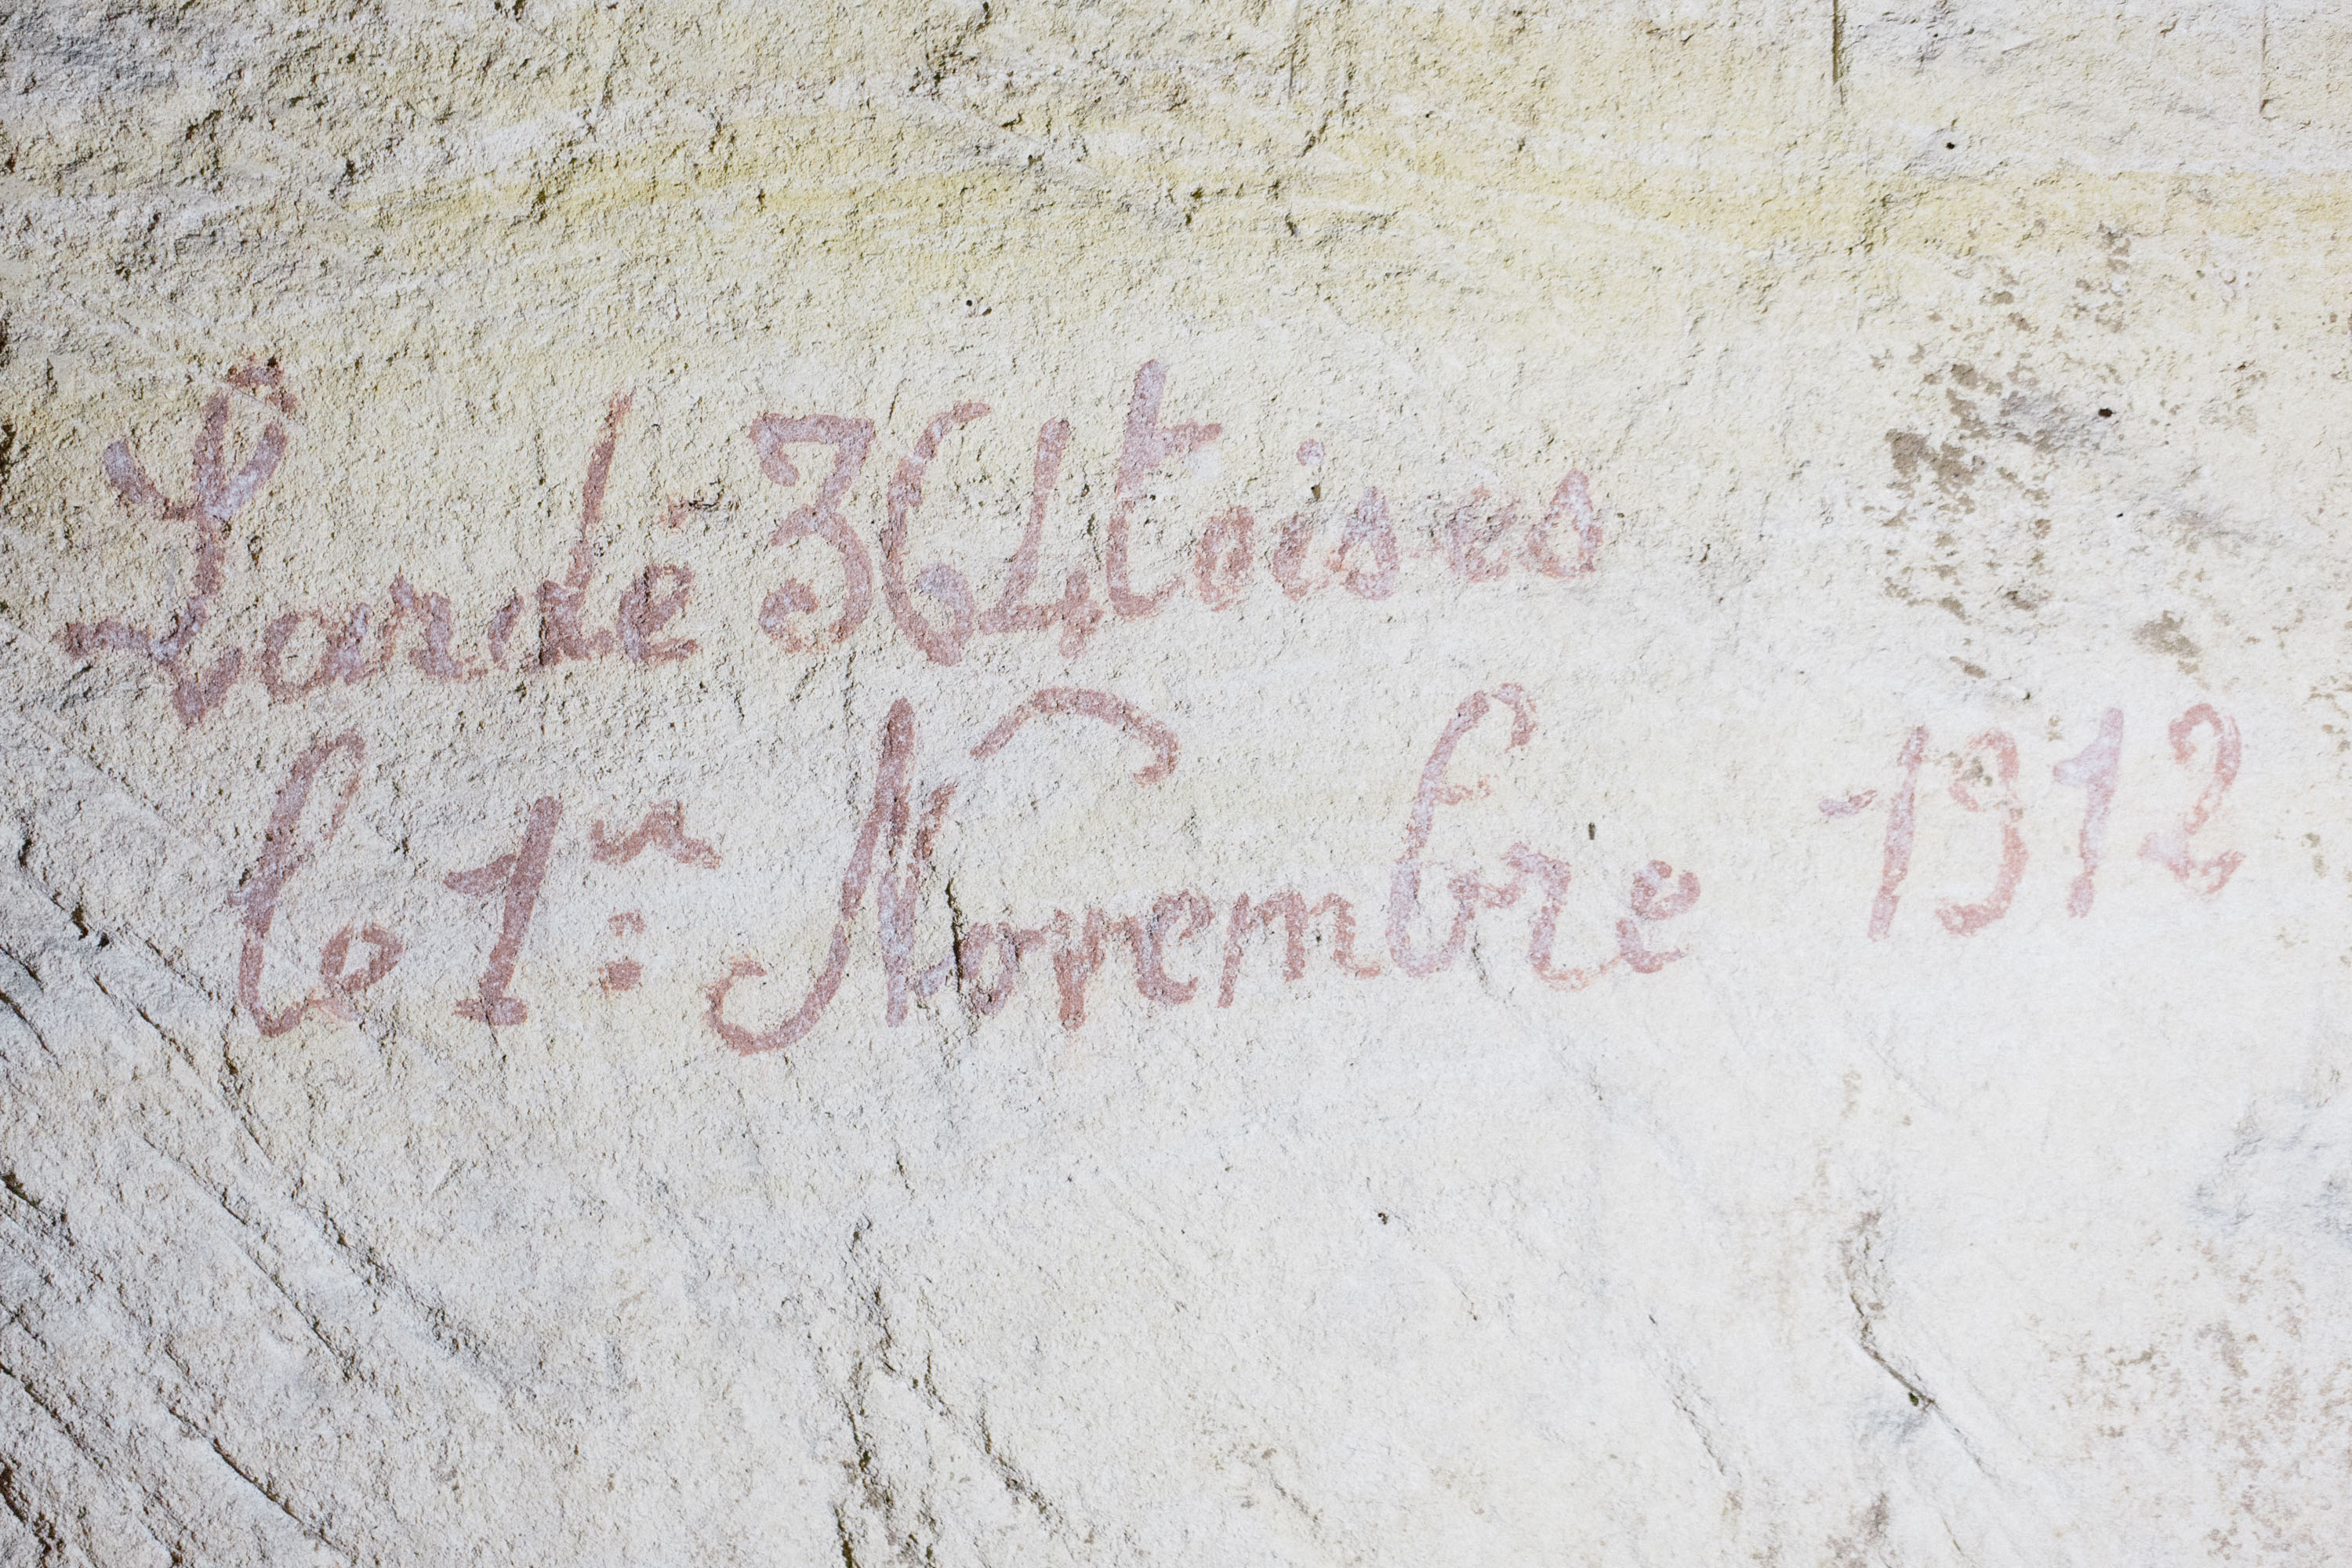 Larde 364 toises
le 1er: Novembre 1912